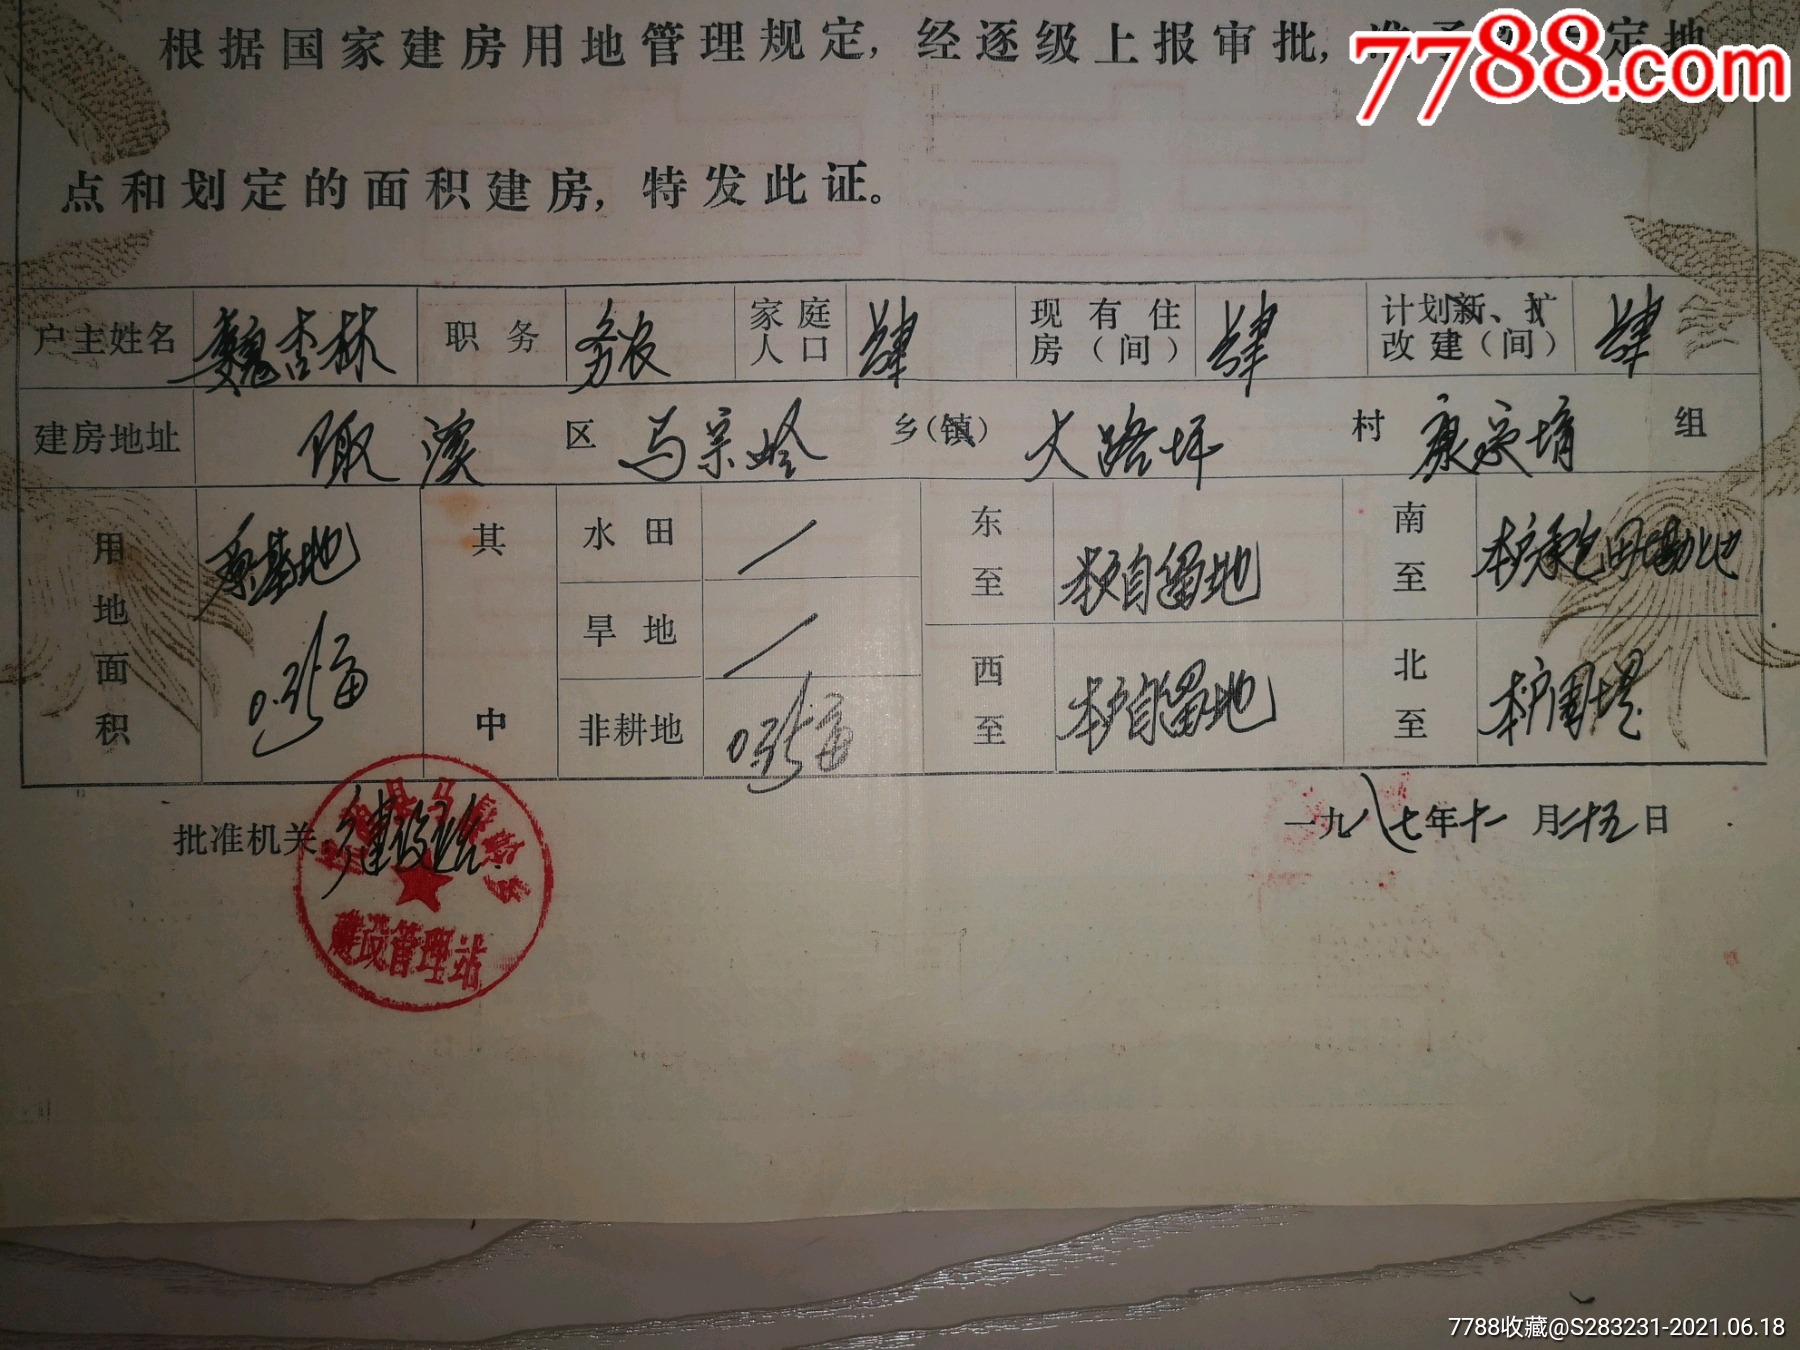 根据国家建房用地管理规定，经逐级上报审批，准予 定地
7788.com
点和划定的面积建房，特发此证。
户主姓名 魏杏林 职务 务农 家庭人口 肆 现有住房（间） 肆 计划新、扩改建（间） 肆
建房地址 陬溪 区 马宗岭 乡（镇） 大路坪 村 组
用地面积 原基地 其中 水田 / 东至 本户自留地 南至 本户承包田
旱地 /
非耕地 西至 本户自留地 北至 本户
批准机关
建设管理站
一九八七年十一月二十五日
7788收藏@S283231-2021.06.18